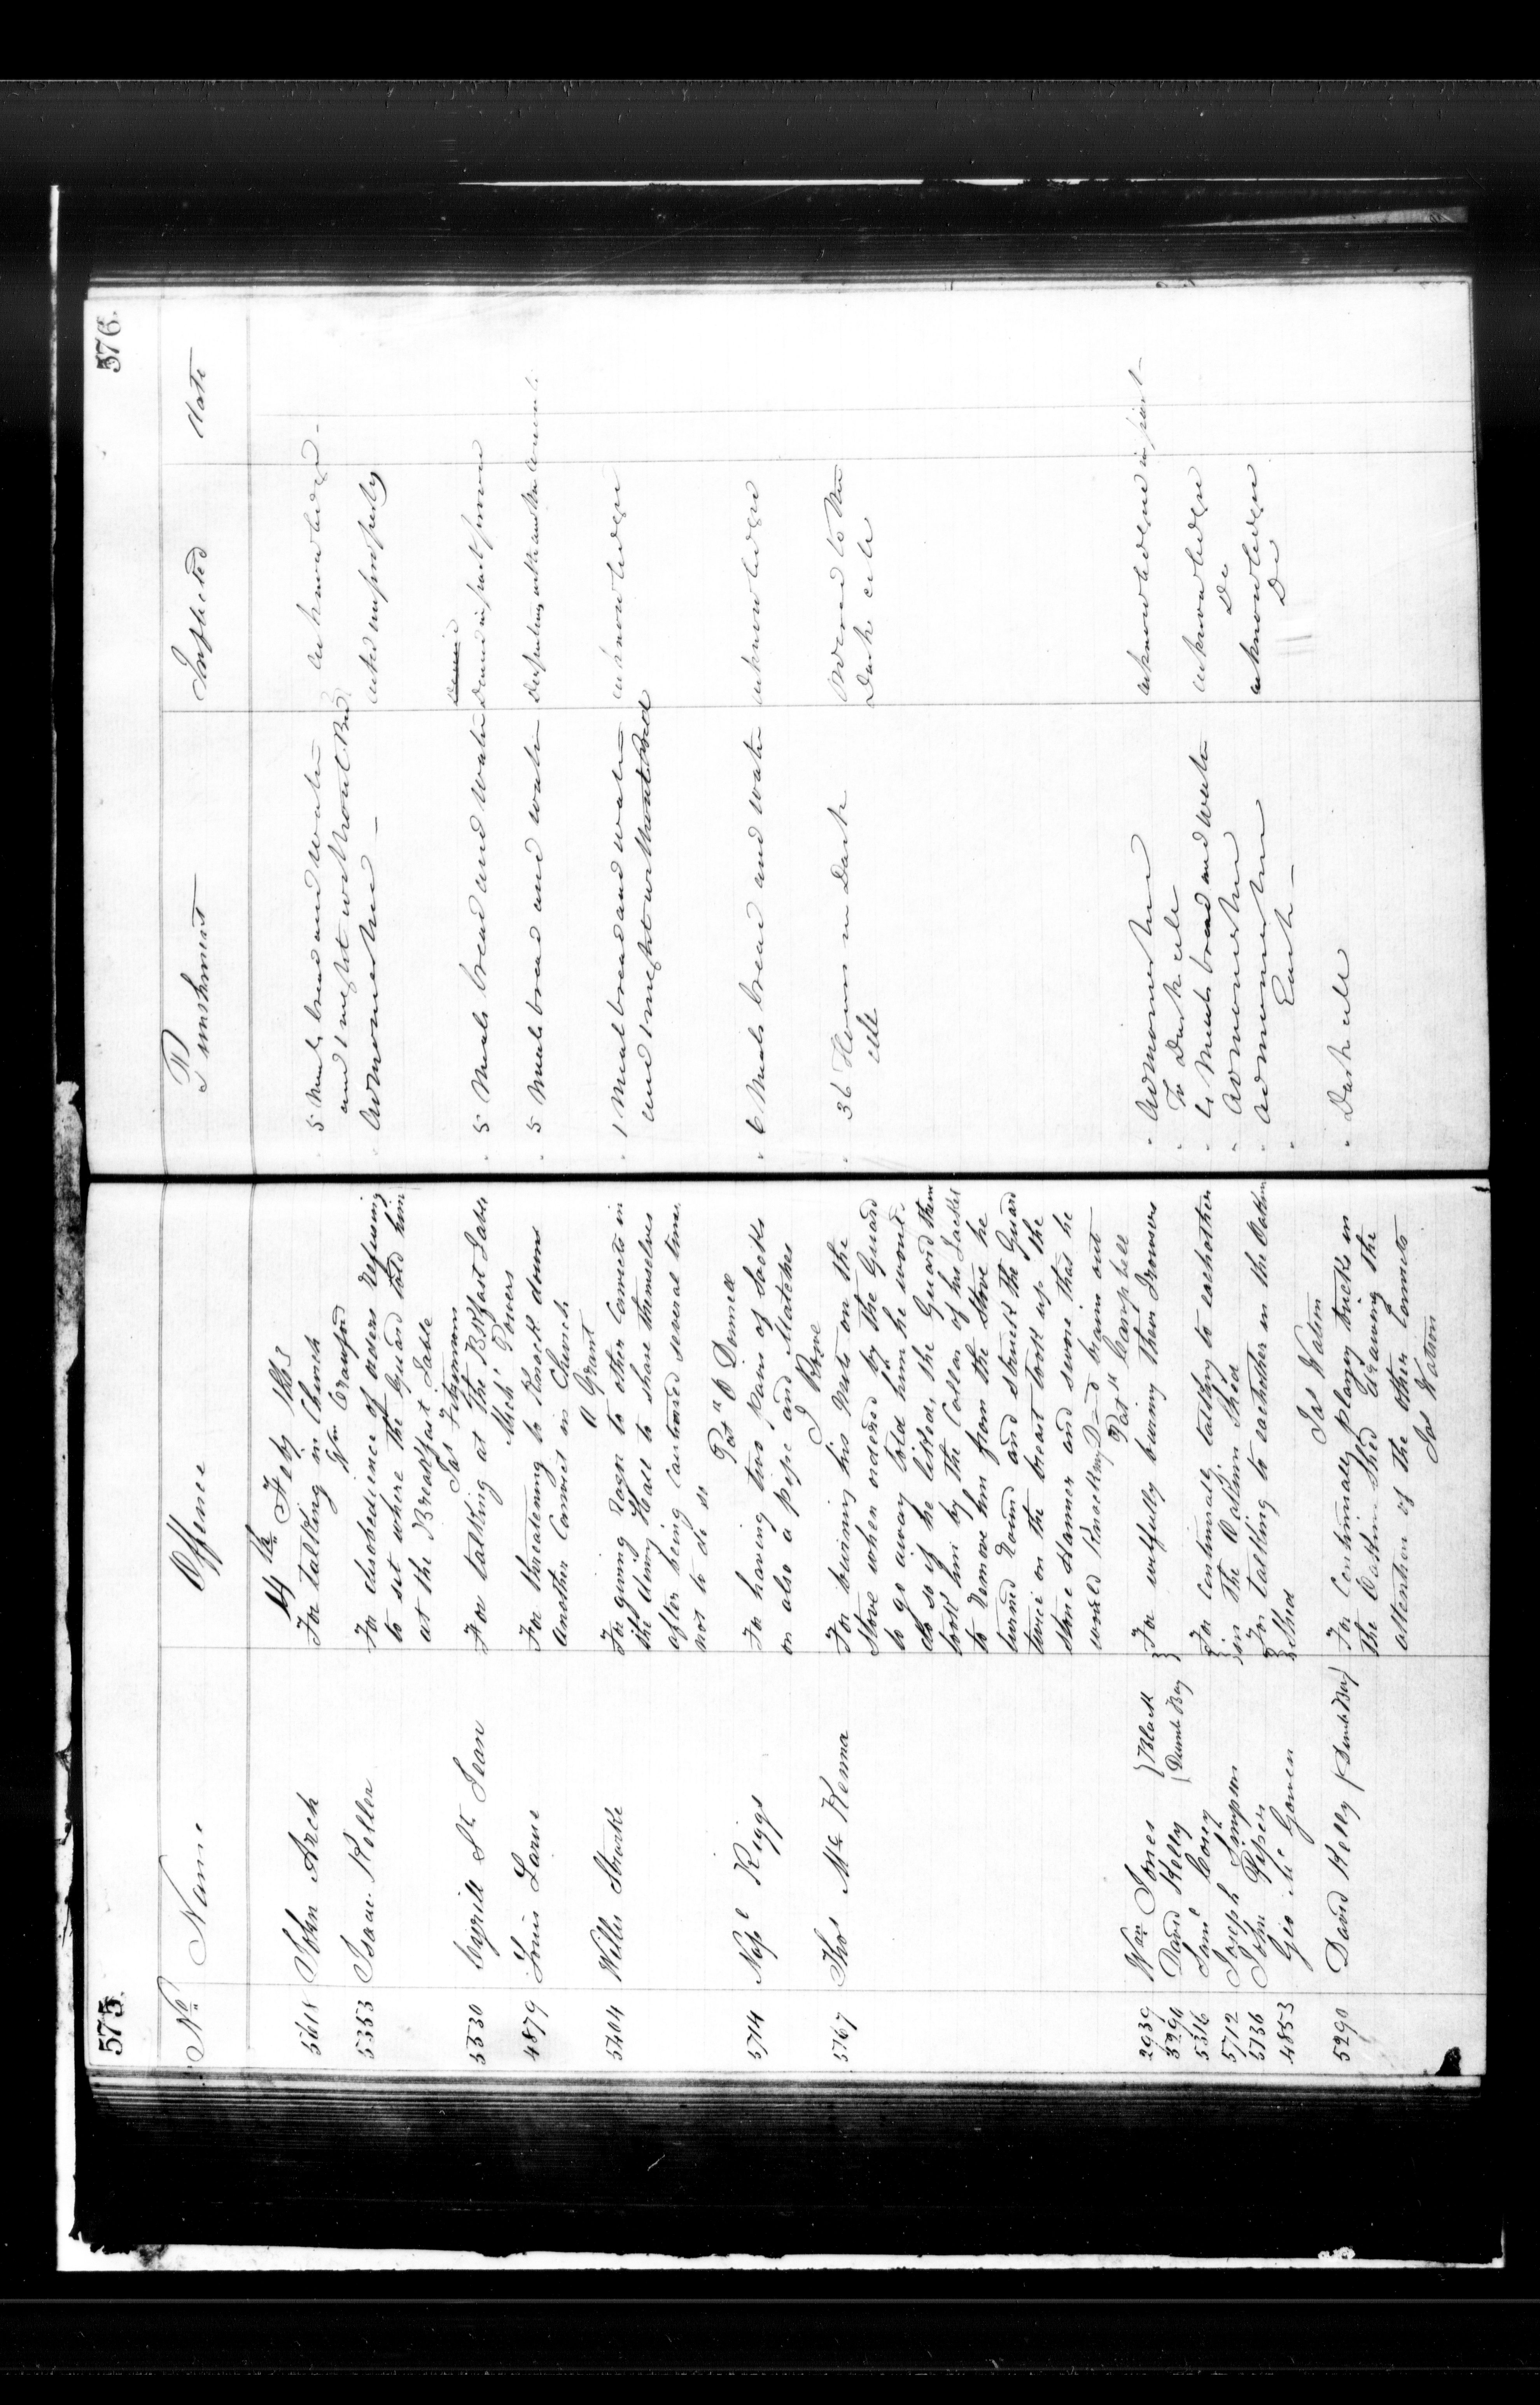 575
No Name Offence
14th Feby 1863
5618 John Arch For talking in Church
Wm Crawford
5353 Isaac Keller For disobedience of orders refusing
to set where the Guard told him
at the Breakfast Table
Jas Fitzsimons
5530 Cyrill St Jean For talking at the Bkfast Table
Mich' Powers
4879 Louis Larue For threatening to Knock down
another Convict in Church
A Grant
5404 Willis Starke For giving to other Convicts in
the dining Hall to shave themselves
after being Cautioned several times
not to do so
Pat " O Donnell
5714 Napl Riggs For having two pairs of Socks
on also a pipe and Matches
5767 Thos McKenna For burning his Mits on the
Stove when ordered by the Guard
to go away told him he would
do so if he liked, the Guard then
took him by the Collar of his Jacket
to remove him from the Stove he
turned round and struck the Guard
twice on the breast took up the
stone Hammer and swore that he
would Knock my D—d brains out
Pat " Campbell
2939 Wm Jones } Black } For wilfully burning their Trowsers
5290 David Kelly ( Dumb Boy }
5316 Saml Corey } For Continually talking to eachother
5712 Joseph Simpson } in the Oakum Shed
5736 John Piper } For talking to eachother in the Oakum
4853 Geo Mc Gowen } Shed
Jas Watson
5290 David Kelly (Dumb Boy) For Continually playing tricks in
the Oakum Shed drawing the
attention of the other Convicts
Jas Watson
576.
Punishment Inflicted Date
5 Meals bread and Water acknowledged -
and 1 night without Bed
Admonished - acted improperly
Denied
5 Meals bread and Water Denied in part proven
5 Meals bread and water
1 Meal bread and water acknowledged
and 1 night without Bed
6 Meals bread and water acknowledged
36 Hours in Dark Ordered to the
cell Dark cell
Admonished acknowledged in part
To Dark cell
6 Meals bread and Water acknowledged
Admonished Do
Admonished acknowledged
Each - Do
Dark cell